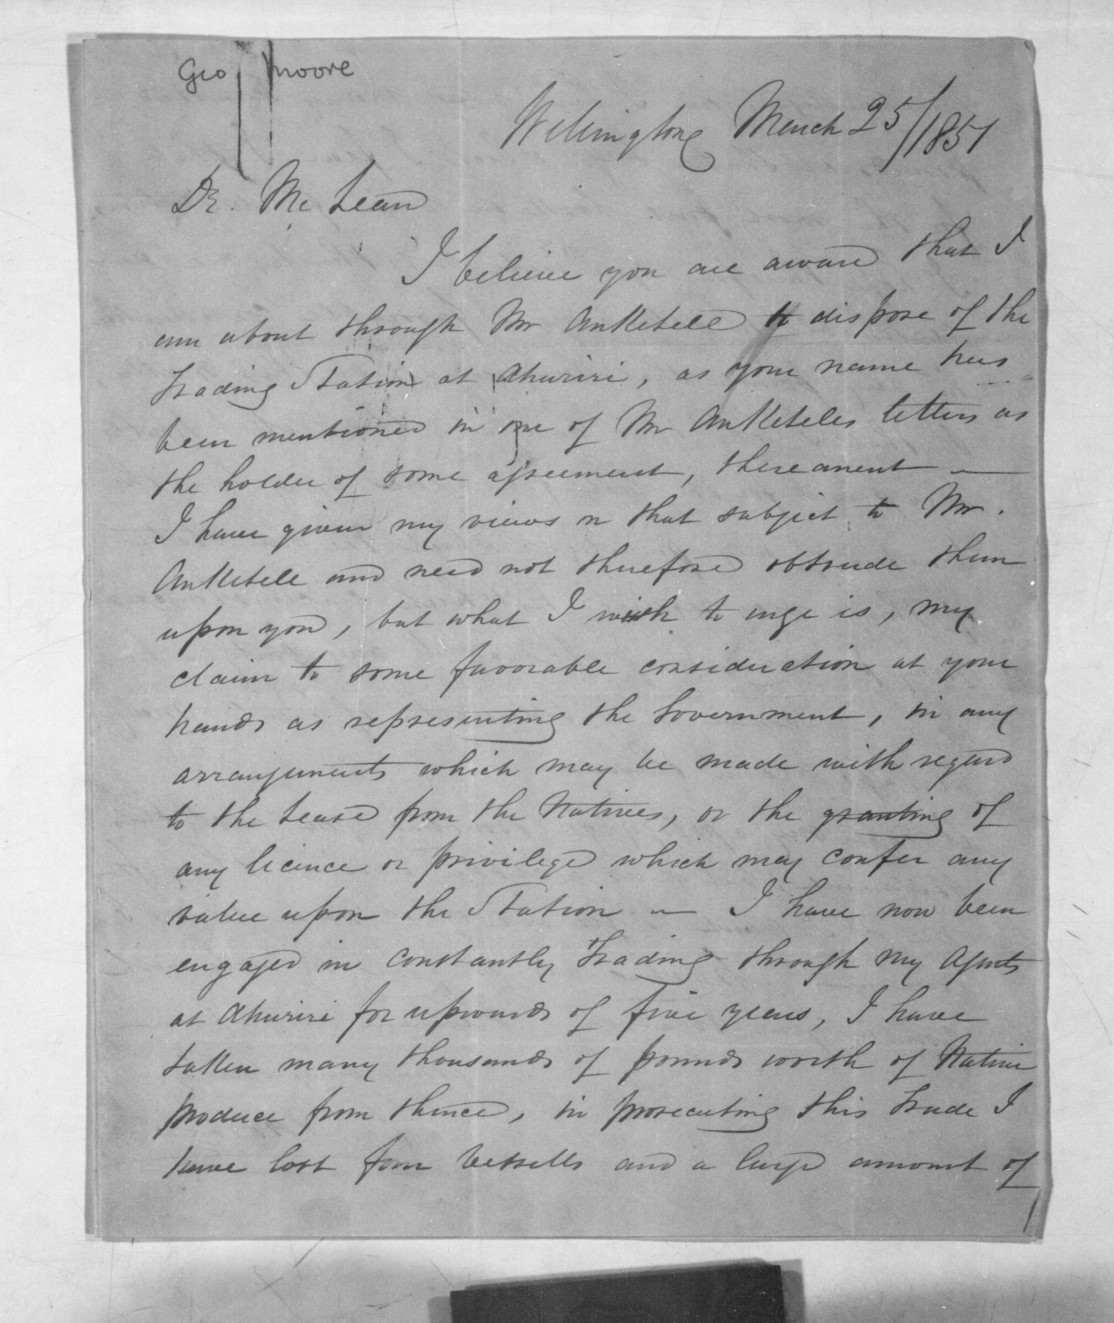 Geo Moore
Wellington March 25/1851
Dr. McLean
I believe you are aware that I
am about through Mr Anketell to dispose of the
Trading Station at Ahuriri, as your name has
been mentioned in one of Mr Anketells letters as
the holder of some agreement, thereanent —
I have given my views on that subject to Mr.
Anketell and need not therefore obtrude them
upon you, but what I wish to urge is, my
claim to some favorable consideration at your
hands as representing the Government, in any
arrangements which may be made with regard
to the Lease from the Natives, or the granting of
any licence or privilege which may confer any
value upon the Station — I have now been
engaged in constantly trading through my Agents
at Ahuriri for upwards of five years, I have
taken many thousands of pounds worth of Native
produce from thence, in prosecuting this trade I
have lost four Vessells and a large amount of